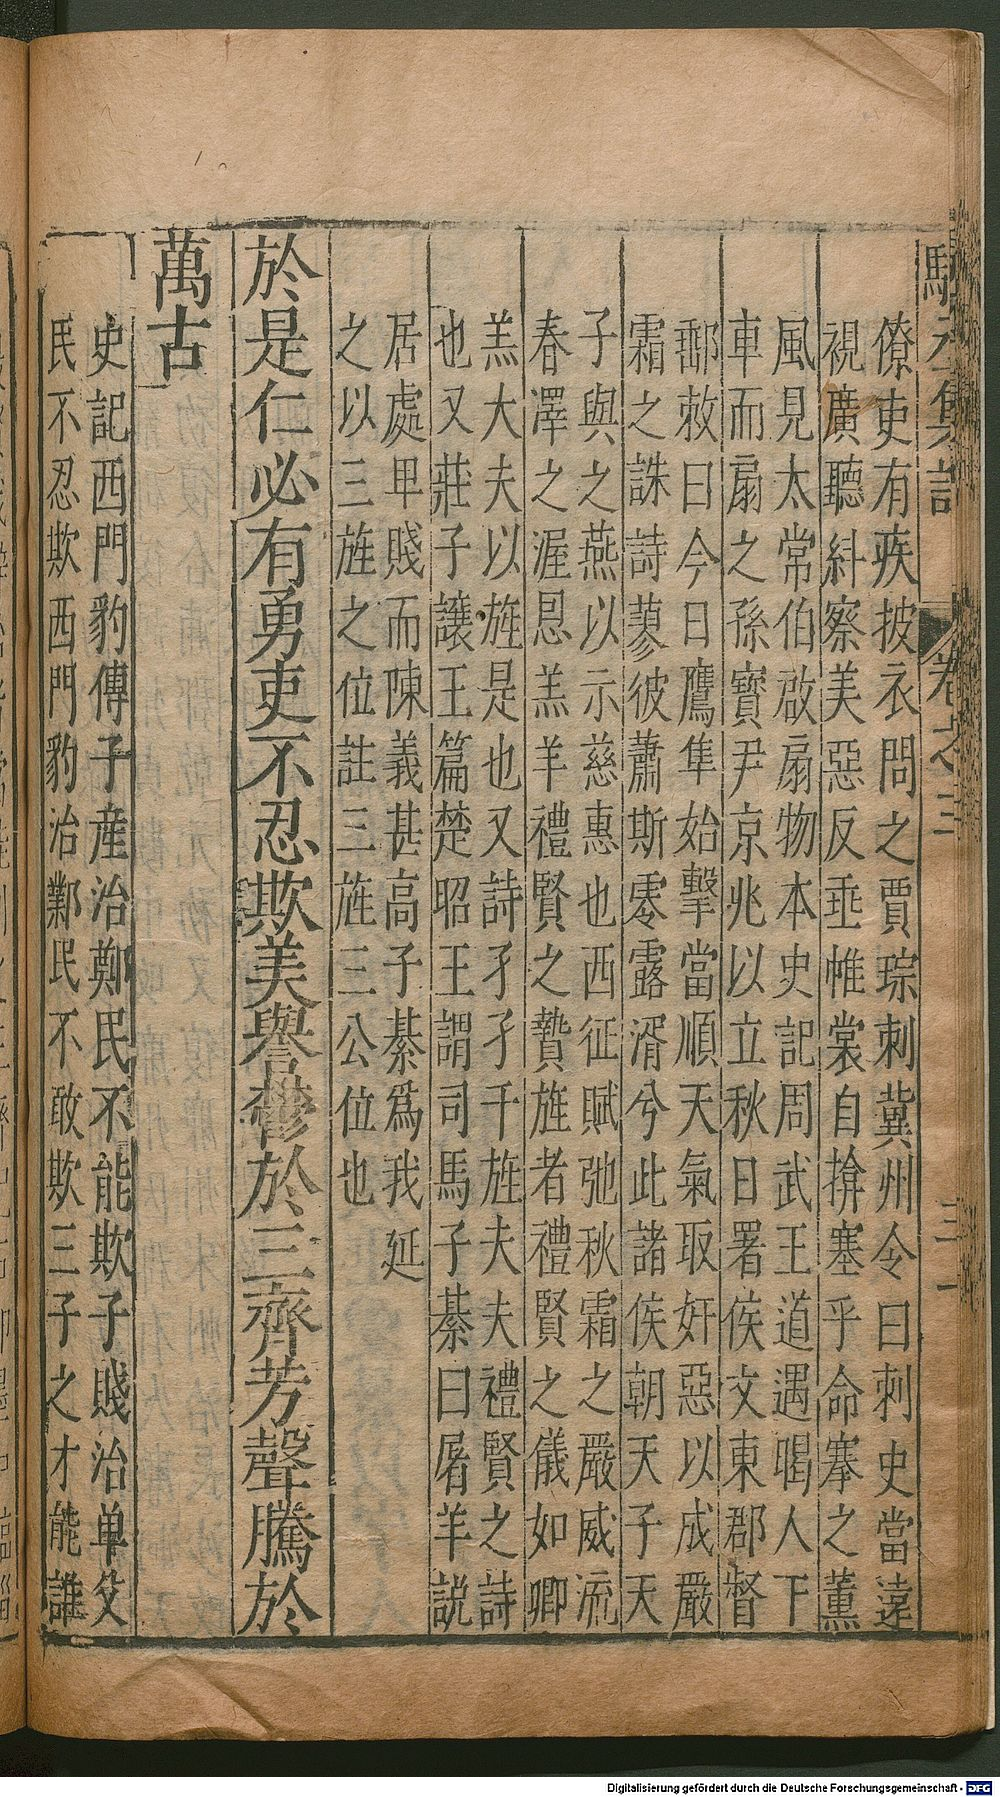 僚吏有疾披衣問之賈琮刺冀州令曰刺史當遠
視廣聽紏察美惡反垂帷裳自揜塞乎命搴之薰
風見太常伯啟扇物本史記周武王道遇暍人下
車而扇之孫寶尹京兆以立秋日署侯文東郡督
鄱敕曰今日鷹隼始擊當順天氣取奸惡以成嚴
霜之誅詩蓼彼蕭斯零露湑兮此諸侯朝天子天
子與之燕以示慈惠也西征賦弛秋霜之嚴威流
春澤之渥恩羔羊禮賢之贄旌者禮賢之儀如卿
羔大夫以旌是也又詩孑孑千旌夫夫禮賢之詩
也又莊子讓王篇楚昭王謂司馬子綦曰屠羊説
居處卑賤而陳義甚高子綦爲我延
之以三旌之位註三旌三公位也
於是仁必有勇吏不忍欺美譽鬱於三齊芳聲騰於
萬古
史記西門豹傳子産治鄭民不能欺子賤治单父
民不忍欺西門豹治鄴民不敢欺三子之才能誰
卷之三
Digitalisierung gefördert durch die Deutsche Forschungsgemeinschaft - DFG